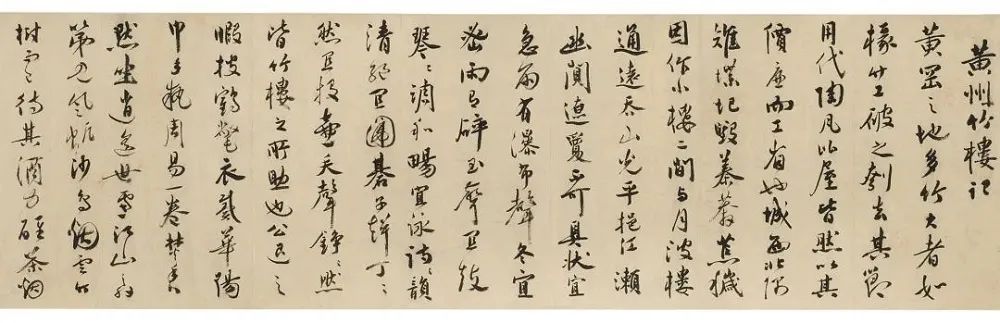 黄州竹樓記
黄罡之地多竹大者如
椽竹工破之刳去其節
用代陶瓦比屋皆然以其
價廉而工省也城西北隅
雉堞圮毁蓁莽荒穢
因作小樓二間与月波樓
通遠吞山光平挹江瀨
幽闃遼夐不可具状宜
急雨有瀑布聲冬宜
密雨有碎玉聲宜鼓
琴〻調和暢宜詠詩〻韻
清絕宜圍碁子聲丁〻
然宜投壺矢聲錚〻然
皆竹樓之所助也公退之
暇披鶴氅衣戴華陽
巾手執周易一卷焚香
默坐消遣世慮江山之外
第見風帆沙鳥烟雲竹
樹而已待其酒力醒茶烟